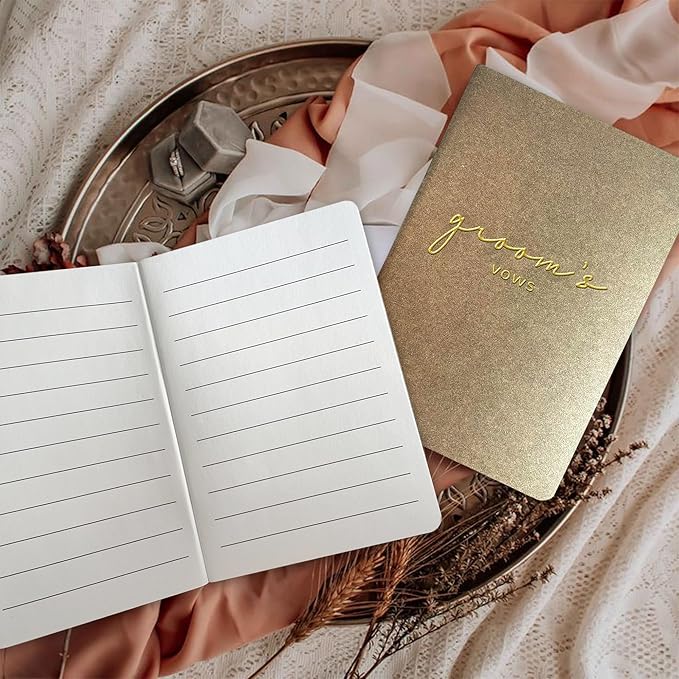 groom's
VOWS